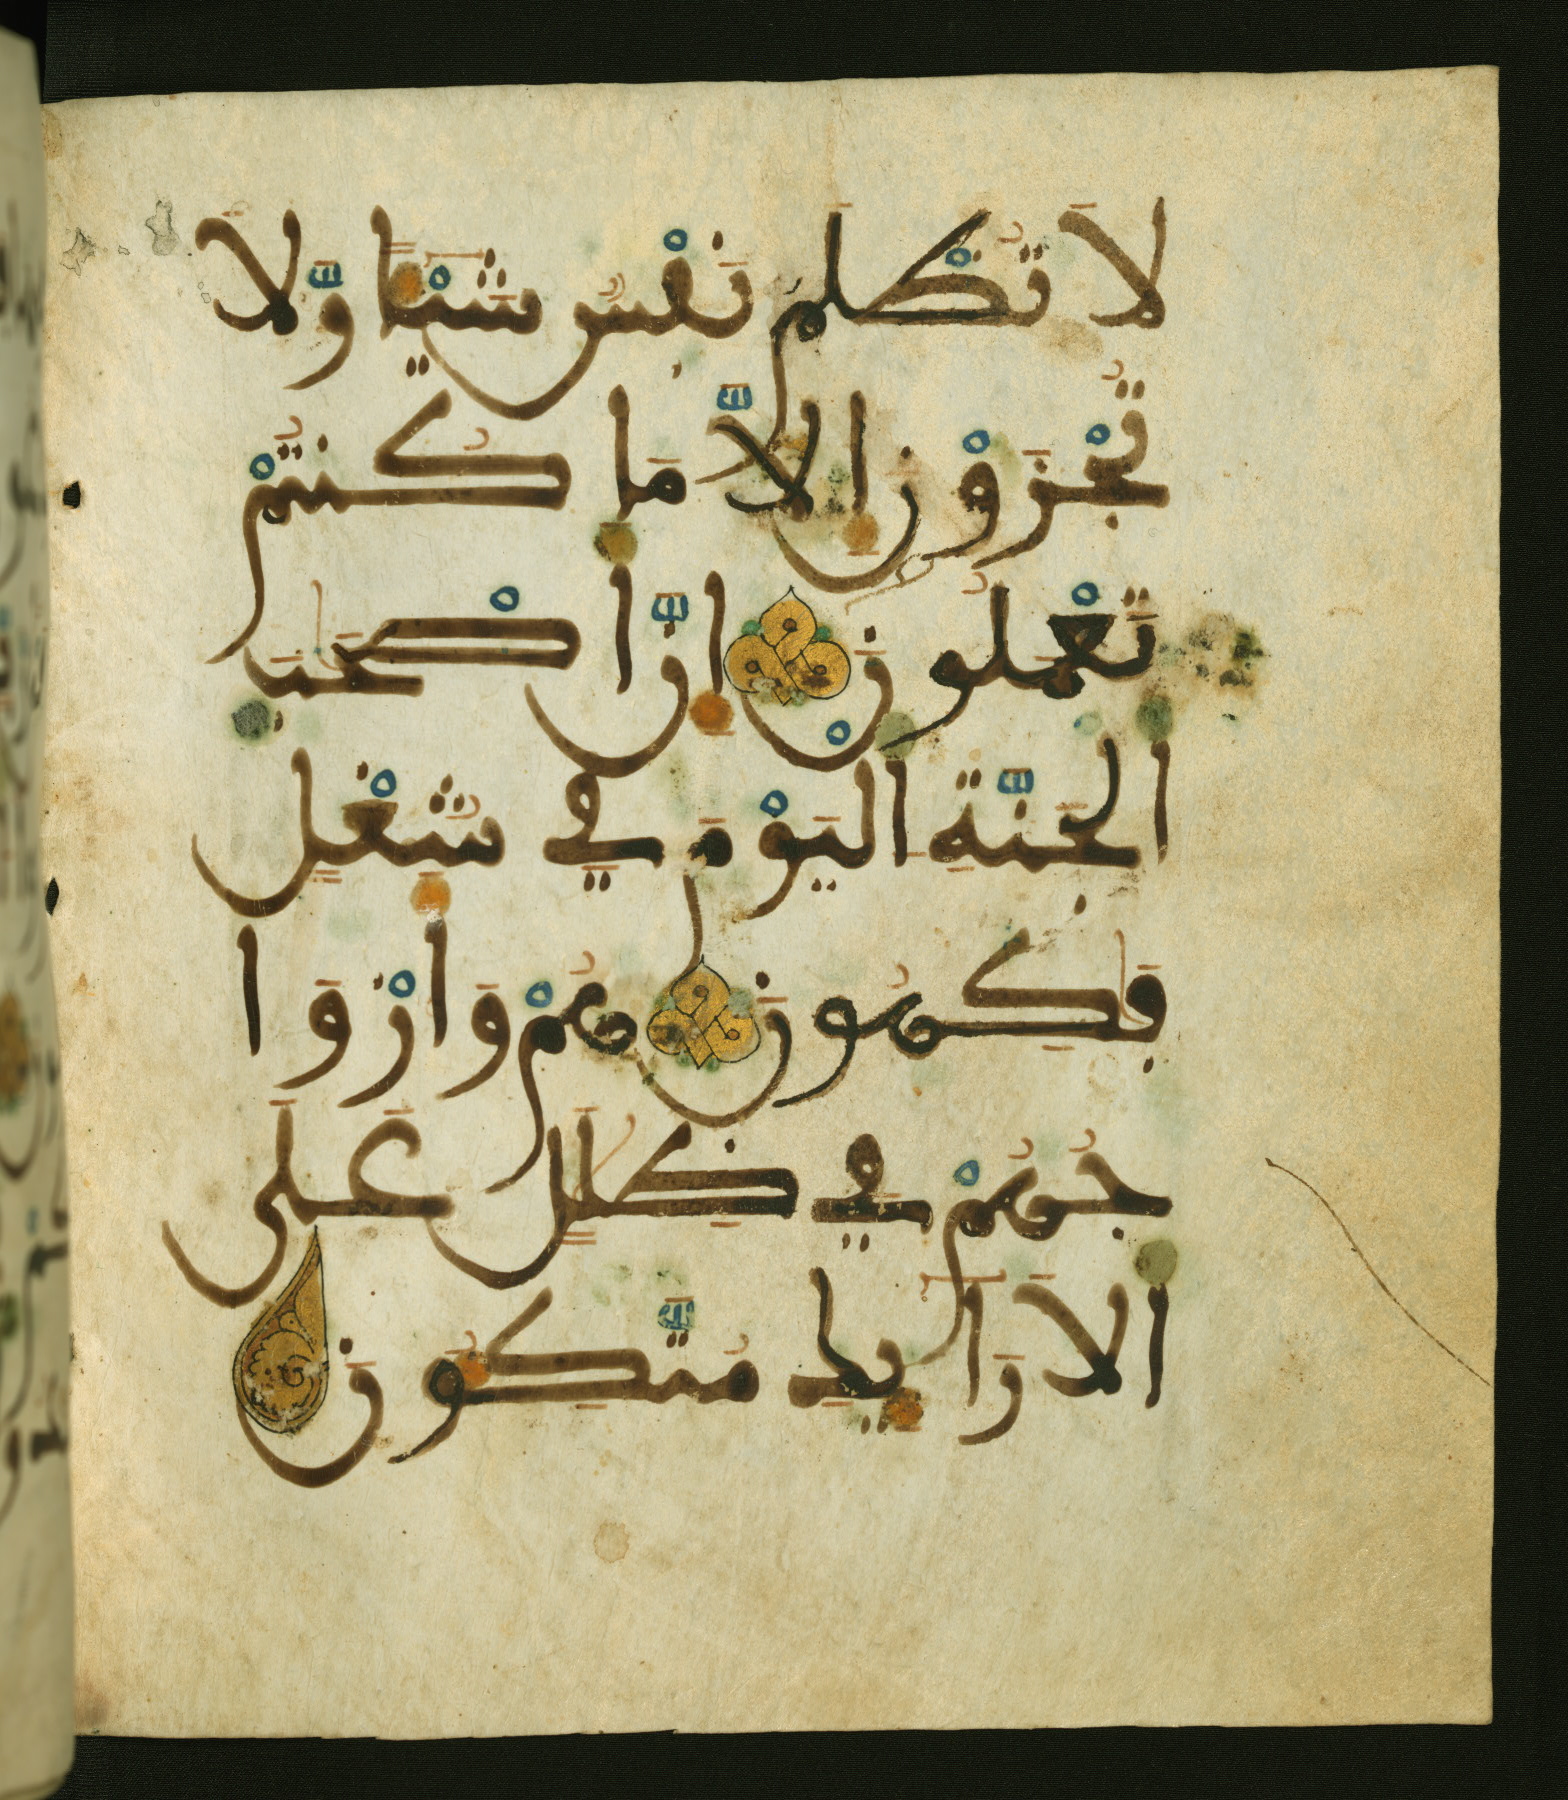 لَا تُظْلَمُ نَفْسٌ شَيْـًٔا وَّلَا
تُجْزَوْنَ إِلَّا مَا كُنتُمْ
تَعْمَلُونَ إِنَّ أَصْحَٰبَ
الْجَنَّةِ الْيَوْمَ فِي شُغْلٍ
فَٰكِهُونَ هُمْ وَأَزْوَا
جُهُمْ فِي ظِلَٰلٍ عَلَى
الْأَرَآئِكِ مُتَّكِـُٔونَ